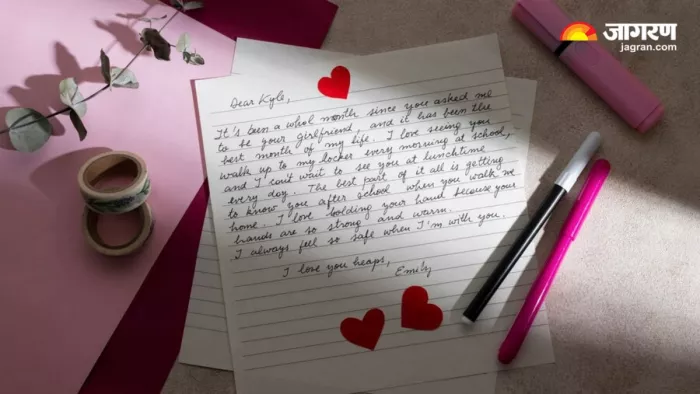 जागरण
jagran.com
Dear Kyle,
It's been a whol month since you asked me
to be your girlfriend, and it has been the
best month of my life. I love seeing you
walk up to my locker every morning at school,
and I can't wait to see you at lunchtime
every day. The best part of it all is getting
to know you after school when you walk me
home. I love holding your hand because your
hands are so strong and warm.
I always feel so safe when I'm with you.
I love you heaps,
Emily